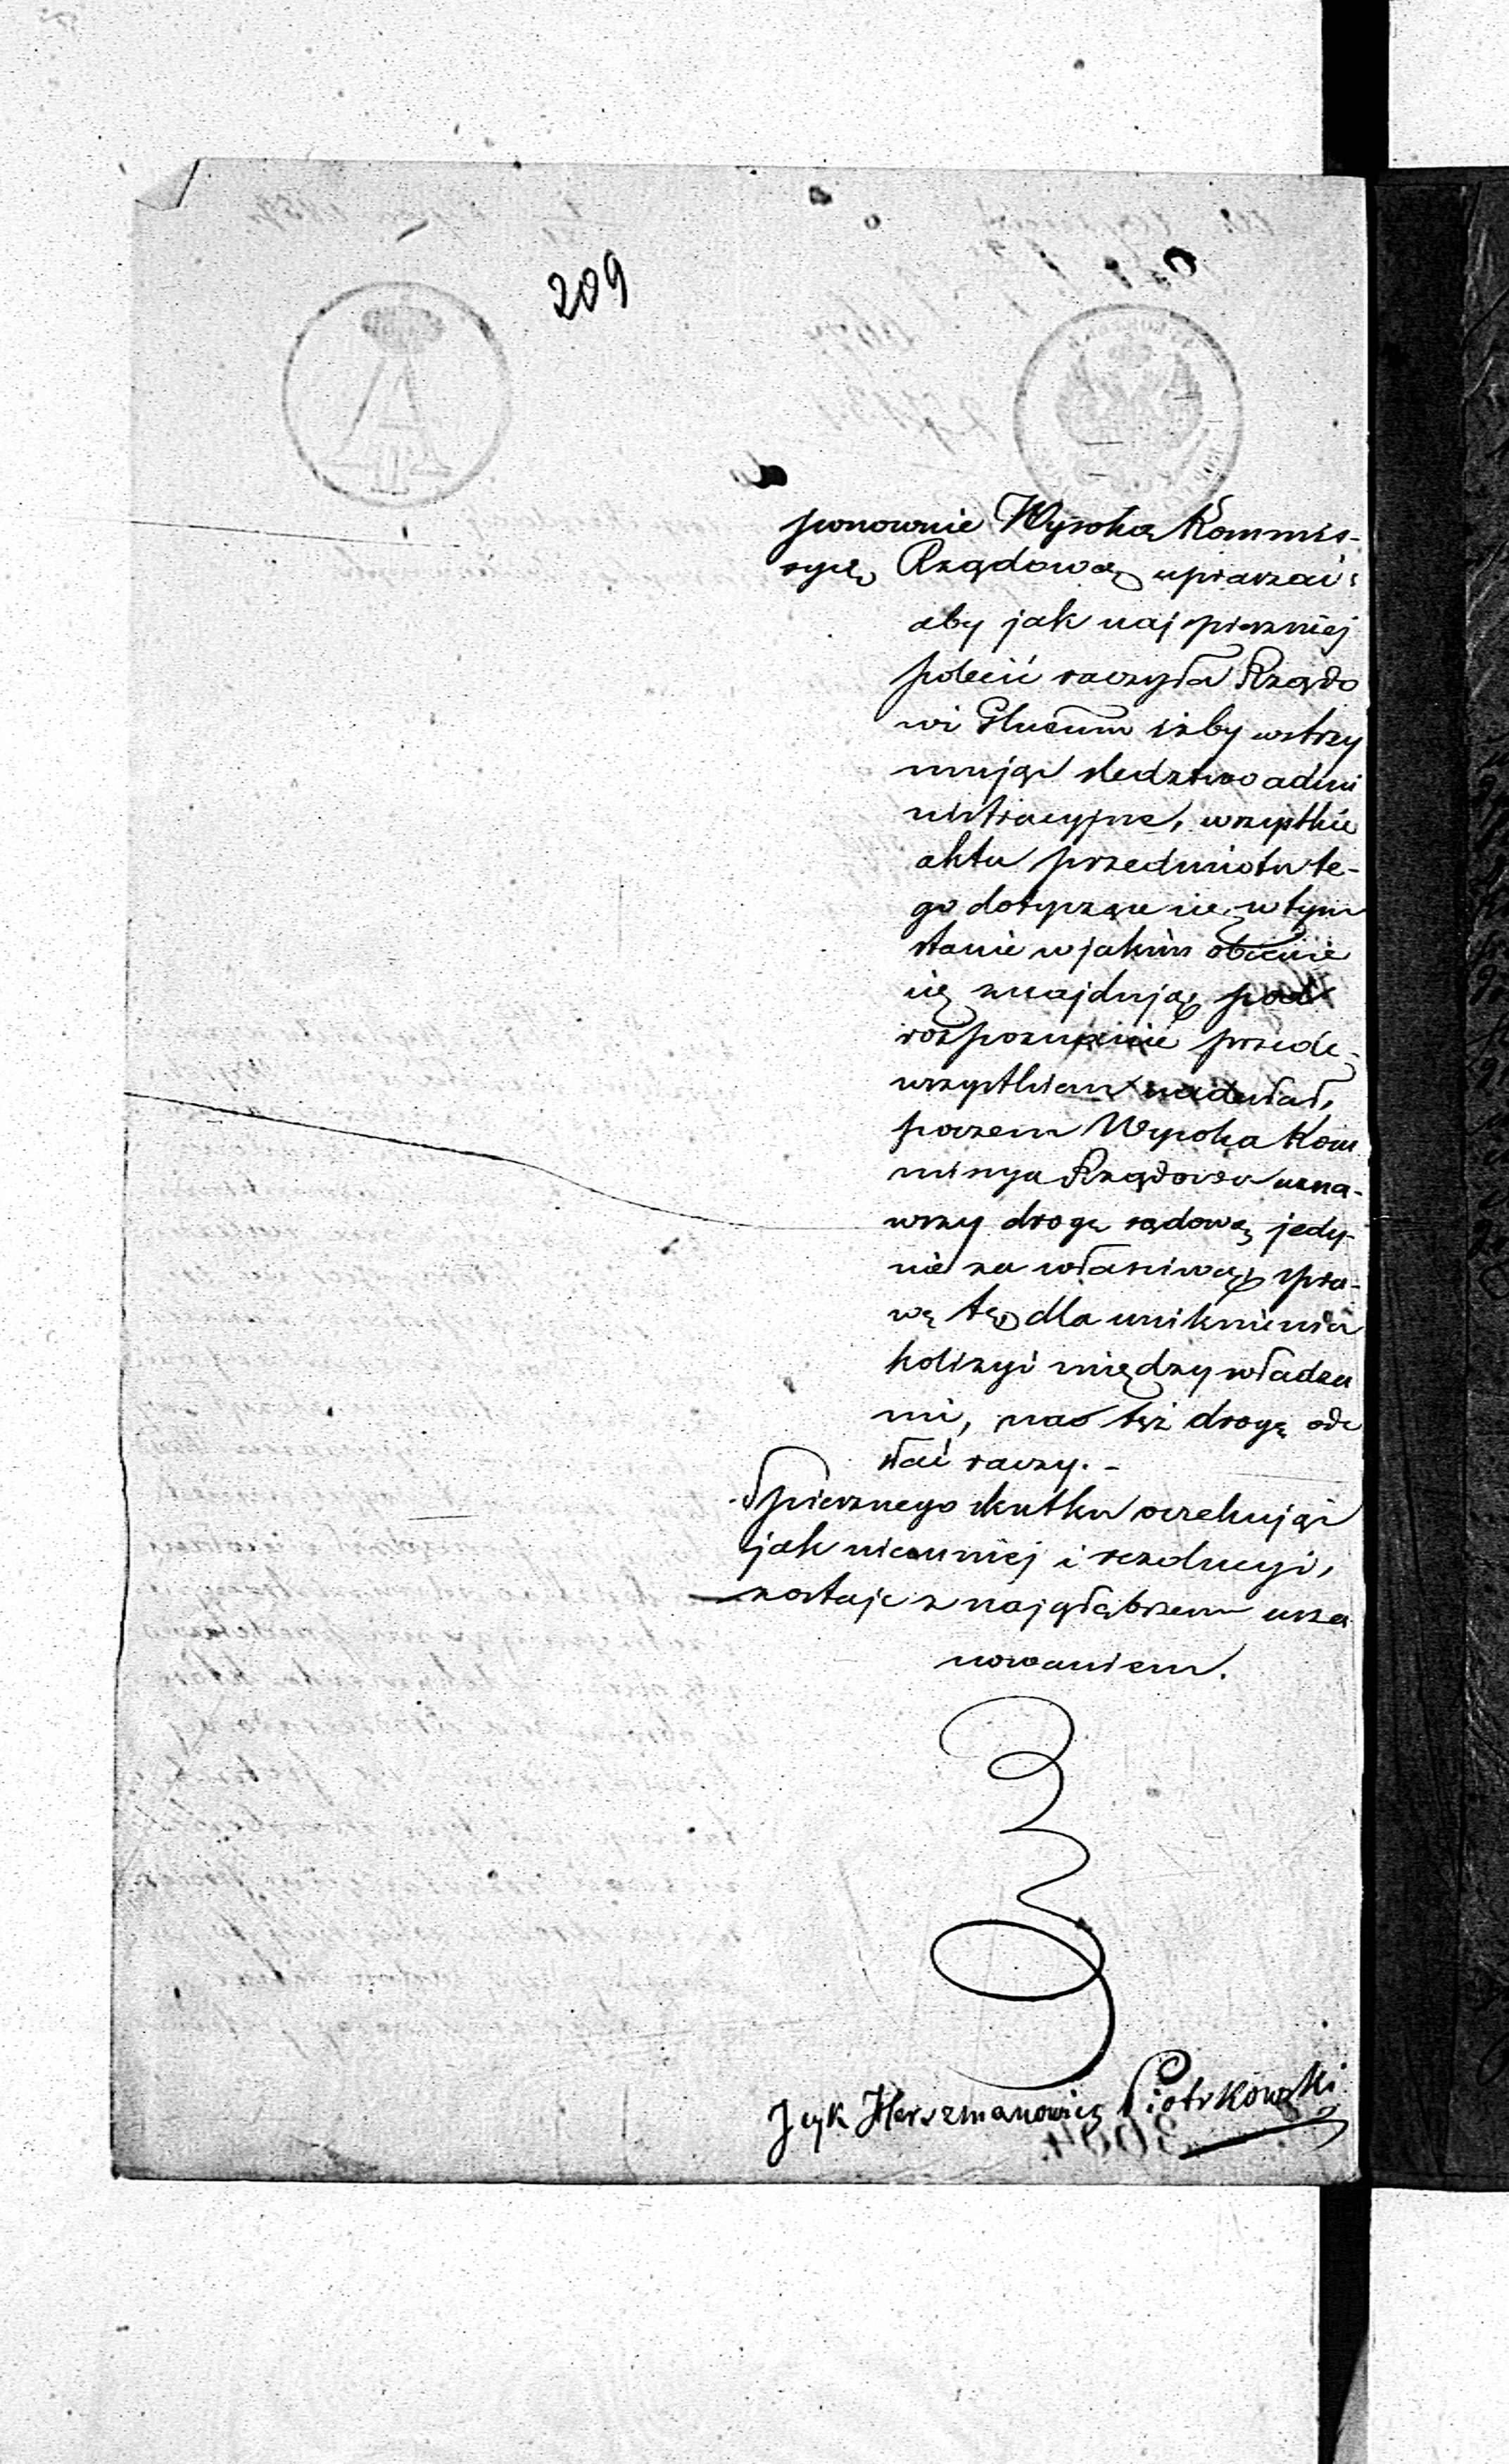 209
ponownie Wysoką Kommis-
syią Rządową upraszać
aby jak najspieszniej
polecić raczyła Rządo
wi Gbuernm iżby wstrzy
mując śledztwo admi
nistracyjne, wszystkie
akta przedmiotu te-
go dotyczące się, w tym
stanie w jakim obecnie
się znajdują pod
rozpoznanie przede-
wszystkiem nadesłał,
poczem Wysoka Kom
missya Rządowa uzna-
wszy drogę sądową jedy-
nie za właściwą, spra-
wę tę dla uniknienia
kolizyi między władza
mi, na też drogę ode
słać raczy. -
Spiesznego skutku oczekując
jak niemniej i rezolucyi,
zostaje z najgłębszem usza
nowaniem.
Jcyk Herszmanowicz Piotrkowski